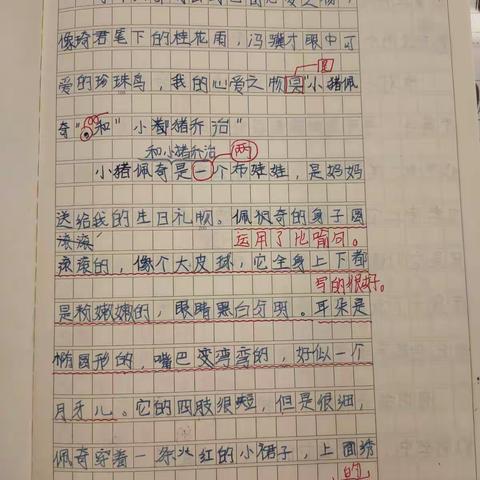 像琦君笔下的桂花雨，冯骥才眼中可
爱的珍珠鸟，我的心爱之物是"小猪佩
奇"和"小猪乔治"
和小猪乔治 两
小猪佩奇是一个布娃娃，是妈妈
送给我的生日礼物。佩奇的身子圆
滚滚 运用了比喻句。
滚滚的，像个大皮球，它全身上下都
写的很好。
是粉嫩嫩的，眼睛黑白分明。耳朵是
椭圆形的，嘴巴变弯弯的，好似一个
月牙儿。它的四肢很短，但是很细，
佩奇穿着一条火红的小裙子，上面绣
的